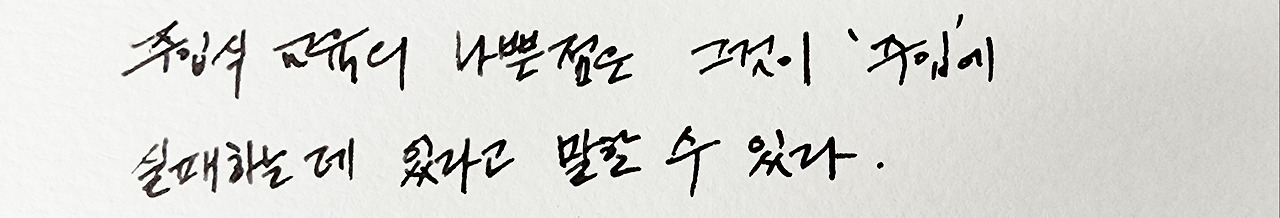 주입식 교육의 나쁜점은 그것이 '주입'에
실패하는데 있다라고 말할 수 있다.